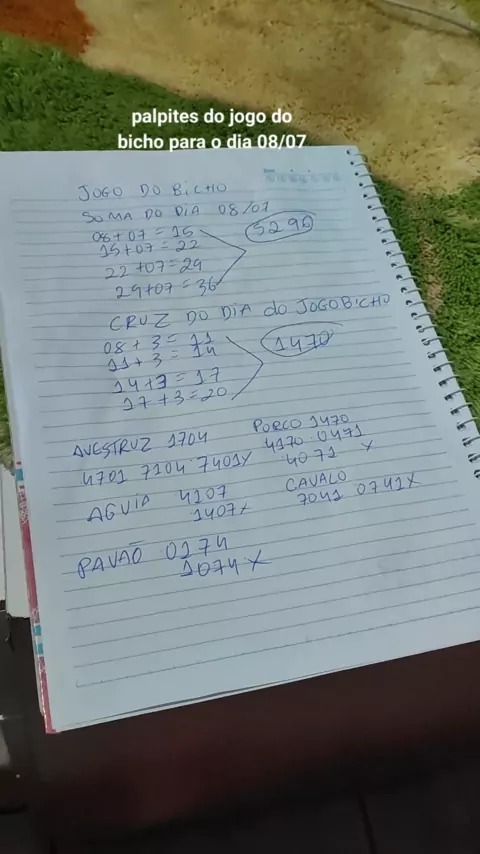 palpites do jogo do
bicho para o dia 08/07
JOGO DO BICHO
SOMA DO DIA 08/07
08+07 = 15
15+07 = 22
22+07=29
29+07 = 36
5296
CRUZ DO DIA do JOGO BICHO
08 + 3 = 11
11+3 = 14
14+3 = 17
17+3=20
1470
AVESTRUZ 1704
4701 7104 7401X
PORCO 1470
4170 0471
4071 X
AGUIA 4107
1407X
CAVALO
7041 0741X
PAVÃO 0174
1074 X